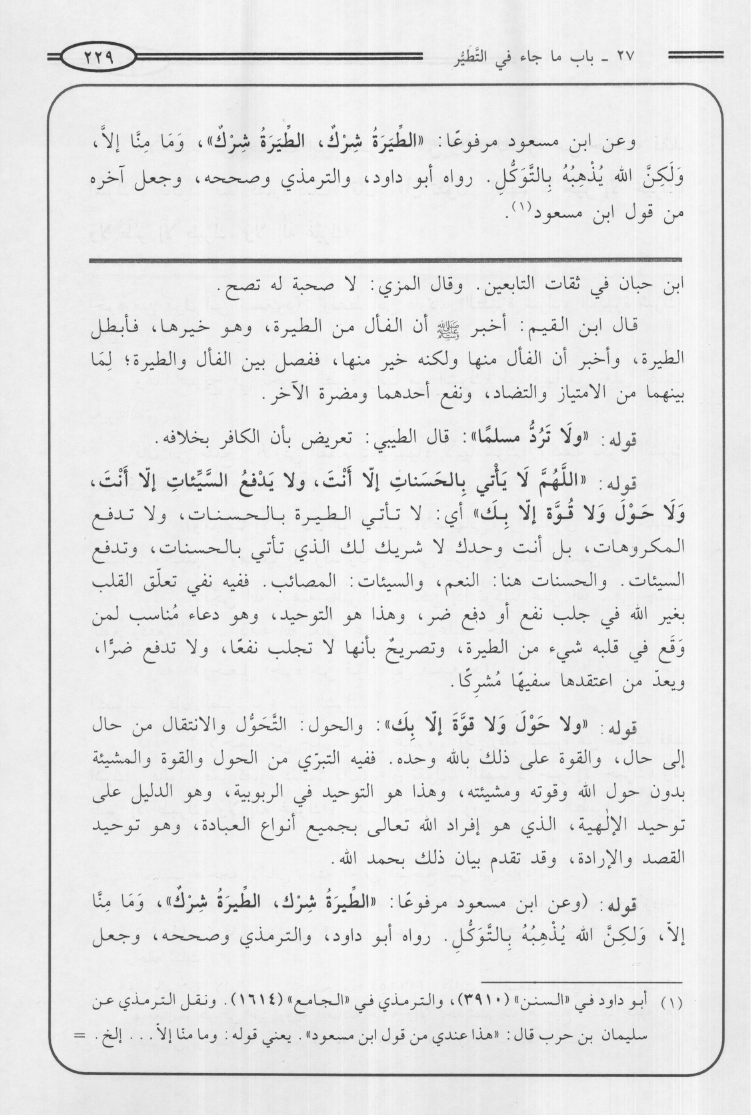 ٢٧ ـ باب ما جاء في التَّطَيُّر
٢٢٩
وعن ابن مسعود مرفوعًا: «الطِّيَرَةُ شِرْكٌ، الطِّيَرَةُ شِرْكٌ»، وَمَا مِنَّا إلاَّ،
وَلَكِنَّ الله يُذْهِبُهُ بِالتَّوَكُّلِ. رواه أبو داود، والترمذي وصححه، وجعل آخره
من قول ابن مسعود(١).
ابن حبان في ثقات التابعين. وقال المزي: لا صحبة له تصح.
قال ابن القيم: أخبر ﷺ أن الفأل من الطيرة، وهو خيرها، فأبطل
الطيرة، وأخبر أن الفأل منها ولكنه خير منها، ففصل بين الفأل والطيرة؛ لِمَا
بينهما من الامتياز والتضاد، ونفع أحدهما ومضرة الآخر.
قوله: «ولَا تَرُدُّ مسلمًا»: قال الطيبي: تعريض بأن الكافر بخلافه.
قوله: «اللَّهُمَّ لَا يَأْتي بِالحَسَناتِ إلّا أَنْتَ، ولا يَدْفعُ السَّيِّئاتِ إلّا أَنْتَ،
وَلَا حَوْلَ وَلا قُوَّة إلّا بِـكَ» أي: لا تـأتـي الـطـيـرة بـالـحـسـنـات، ولا تـدفـع
المكروهات، بل أنت وحدك لا شريك لك الذي تأتي بالحسنات، وتدفع
السيئات. والحسنات هنا: النعم، والسيئات: المصائب. ففيه نفي تعلّق القلب
بغير الله في جلب نفع أو دفع ضر، وهذا هو التوحيد، وهو دعاء مُناسب لمن
وَقَع في قلبه شيء من الطيرة، وتصريحٌ بأنها لا تجلب نفعًا، ولا تدفع ضرًّا،
ويعدّ من اعتقدها سفيهًا مُشرِكًا.
قوله: «ولا حَوْلَ وَلا قوَّةَ إلّا بِكَ»: والحول: التَّحَوُّل والانتقال من حال
إلى حال، والقوة على ذلك بالله وحده. ففيه التبرّي من الحول والقوة والمشيئة
بدون حول الله وقوته ومشيئته، وهذا هو التوحيد في الربوبية، وهو الدليل على
توحيد الإلٰهية، الذي هو إفراد الله تعالى بجميع أنواع العبادة، وهو توحيد
القصد والإرادة، وقد تقدم بيان ذلك بحمد الله.
قوله: (وعن ابن مسعود مرفوعًا: «الطِّيَرَةُ شِرْك، الطِّيَرَةُ شِرْكٌ»، وَمَا مِنَّا
إلاّ، وَلَكِنَّ الله يُذْهِبُهُ بِالتَّوَكُّلِ. رواه أبو داود، والترمذي وصححه، وجعل
(١) أبو داود في «السنن» (٣٩١٠)، والترمذي في «الجامع» (١٦١٤). ونقل الترمذي عن
سليمان بن حرب قال: «هذا عندي من قول ابن مسعود». يعني قوله: وما منّا إلاّ... إلخ. =